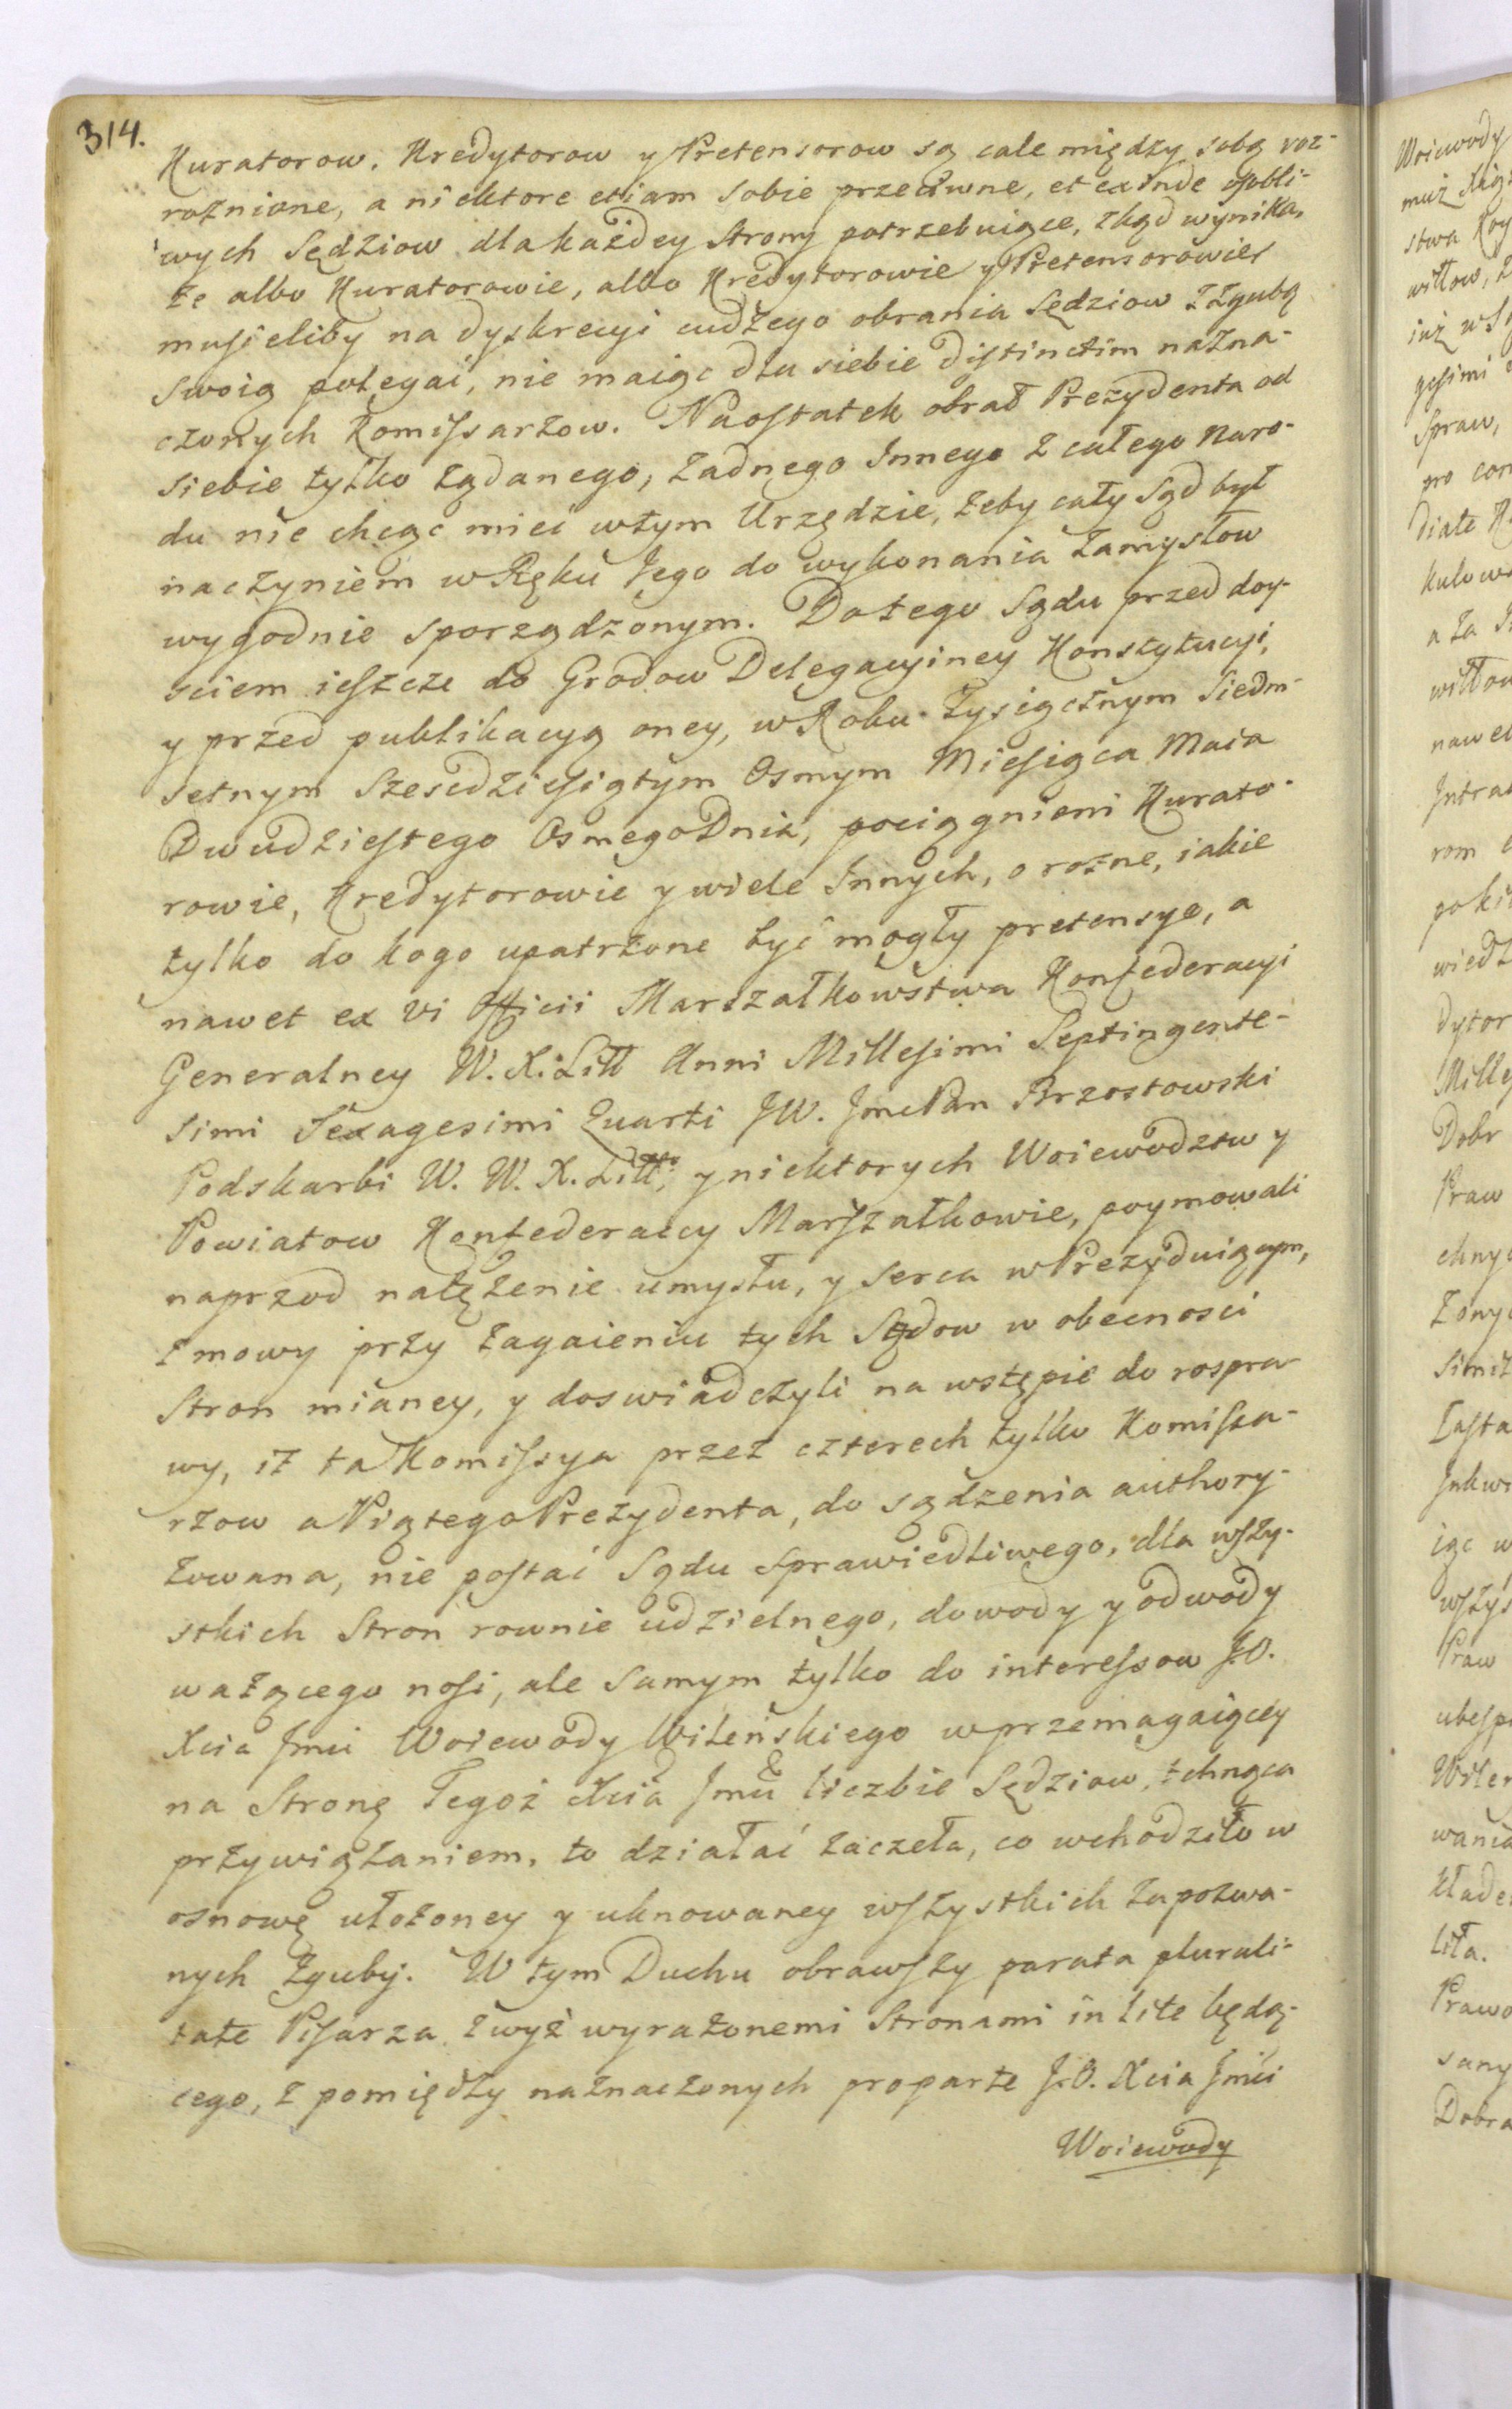 314.
Kuratorow, Kredytorow y Pretensorow są cale między sobą roz-
rożnione, a niektore etiam sobie przeciwne, et exinde osobli-
wych Sędziow dla każdey Strony potrzebuiące, zkąd wynika,
że albo Kuratorowie, albo Kredytorowie y Pretensorowie
musieliby na dyskrecyi cudzego obrania Sędziow z zgubą
swoią polegać, nie maiąc dla siebie distinctim nazna-
czonych Komissarzow. Naostatek obrał Prezydenta od
siebie tylko żądanego, żadnego Innego z całego Naro-
du nie chcąc mieć w tym Urzędzie, żeby cały Sąd był
naczyniem w Ręku Jego do wykonania zamysłow
wygodnie sporządzonym. Do tego Sądu przed doy-
sciem ieszcze do Grodow Delegacyiney Konstytucyi,
y przed publikacyą oney, w Roku Tysiącznym Siedm-
setnym Szescdziesiątym Osmym Miesiąca Maia
Dwudziestego Osmego Dnia, pociągnieni Kurato-
rowie, Kredytorowie y wiele Innych, o rożne, iakie
tylko do kogo upatrzone być mogły pretensye, a
nawet ex vi Officii Marszałkowstwa Konfederacyi
Generalney W. X. Litt Anni Millesimi Septingente-
simi Sexagesimi Quarti JW. Jmc Pan Brzostowski
Podskarbi W. W. X. Litt, y niektorych Woiewodztw y
Powiatow Konfederaccy Marszałkowie, poymowali
naprzod natężenie umysłu, y serca w Prezyduiącym,
z mowy przy zagaieniu tych Sądow w obecnosci
Stron mianey, y doswiadczyli na wstępie do rospra-
wy, iż ta Komissya przez czterech tylko Komissa-
rzow a Piątego Prezydenta, do sądzenia authory-
zowana, nie postać Sądu Sprawiedliwego, dla wszy-
stkich Stron rownie udzielnego, dowody y odwody
ważącego nosi, ale samym tylko do interessow J.O.
Xcia Jmci Woiewody Wileńskiego w przemagaiącey
na Stronę Tegoż Xcia Jmci liczbie Sędziow, tchnąca
przywiązaniem, to działać zaczeła, co wchodziło w
osnowę ułożoney y uknowaney wszystkich zapozwa-
nych zguby. W tym Duchu obrawszy parata plurali-
tate Pisarza z wyż wyrażonemi Stronami in lite będą-
cego, z pomiędzy naznaczonych pro parte J.O. Xcia Jmci
Woiewody